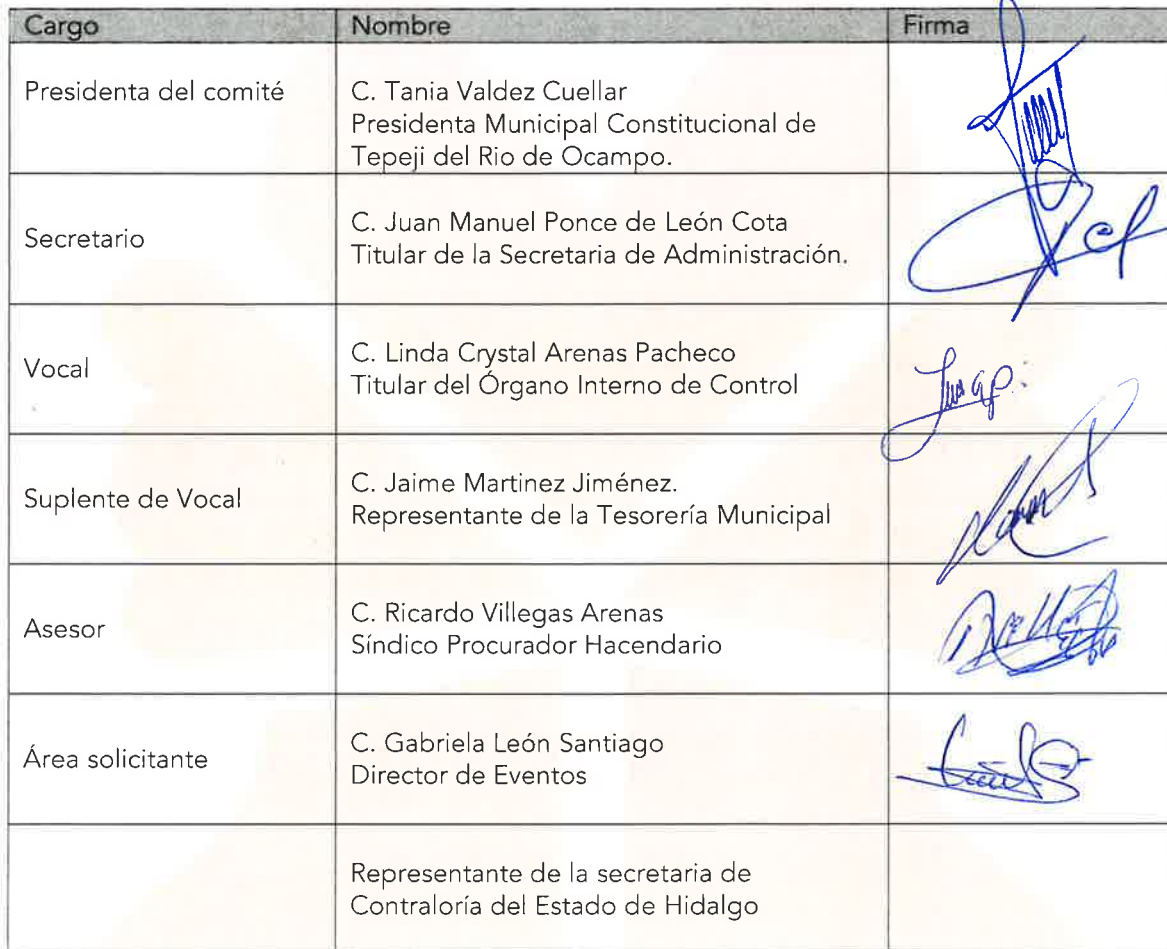 Cargo Nombre Firma
Presidenta del comité
C. Tania Valdez Cuellar
Presidenta Municipal Constitucional de
Tepeji del Rio de Ocampo.
Secretario
C. Juan Manuel Ponce de León Cota
Titular de la Secretaria de Administración.
Vocal
C. Linda Crystal Arenas Pacheco
Titular del Órgano Interno de Control
Suplente de Vocal
C. Jaime Martinez Jiménez.
Representante de la Tesorería Municipal
Asesor
C. Ricardo Villegas Arenas
Síndico Procurador Hacendario
Área solicitante
C. Gabriela León Santiago
Director de Eventos
Representante de la secretaria de
Contraloría del Estado de Hidalgo